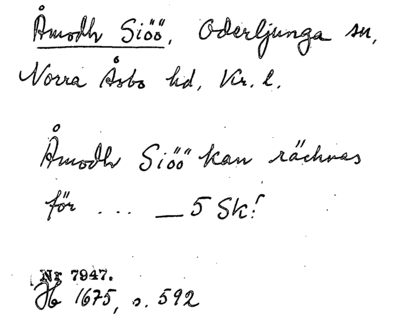 Åmodh Siöö, Oderljunga sn,
Norra Åsbo hd, Kr. l.
Åmodh Siöö kan rächnas
för ... — 5 Sk!
Nr 7947.
Jb 1675, s. 592